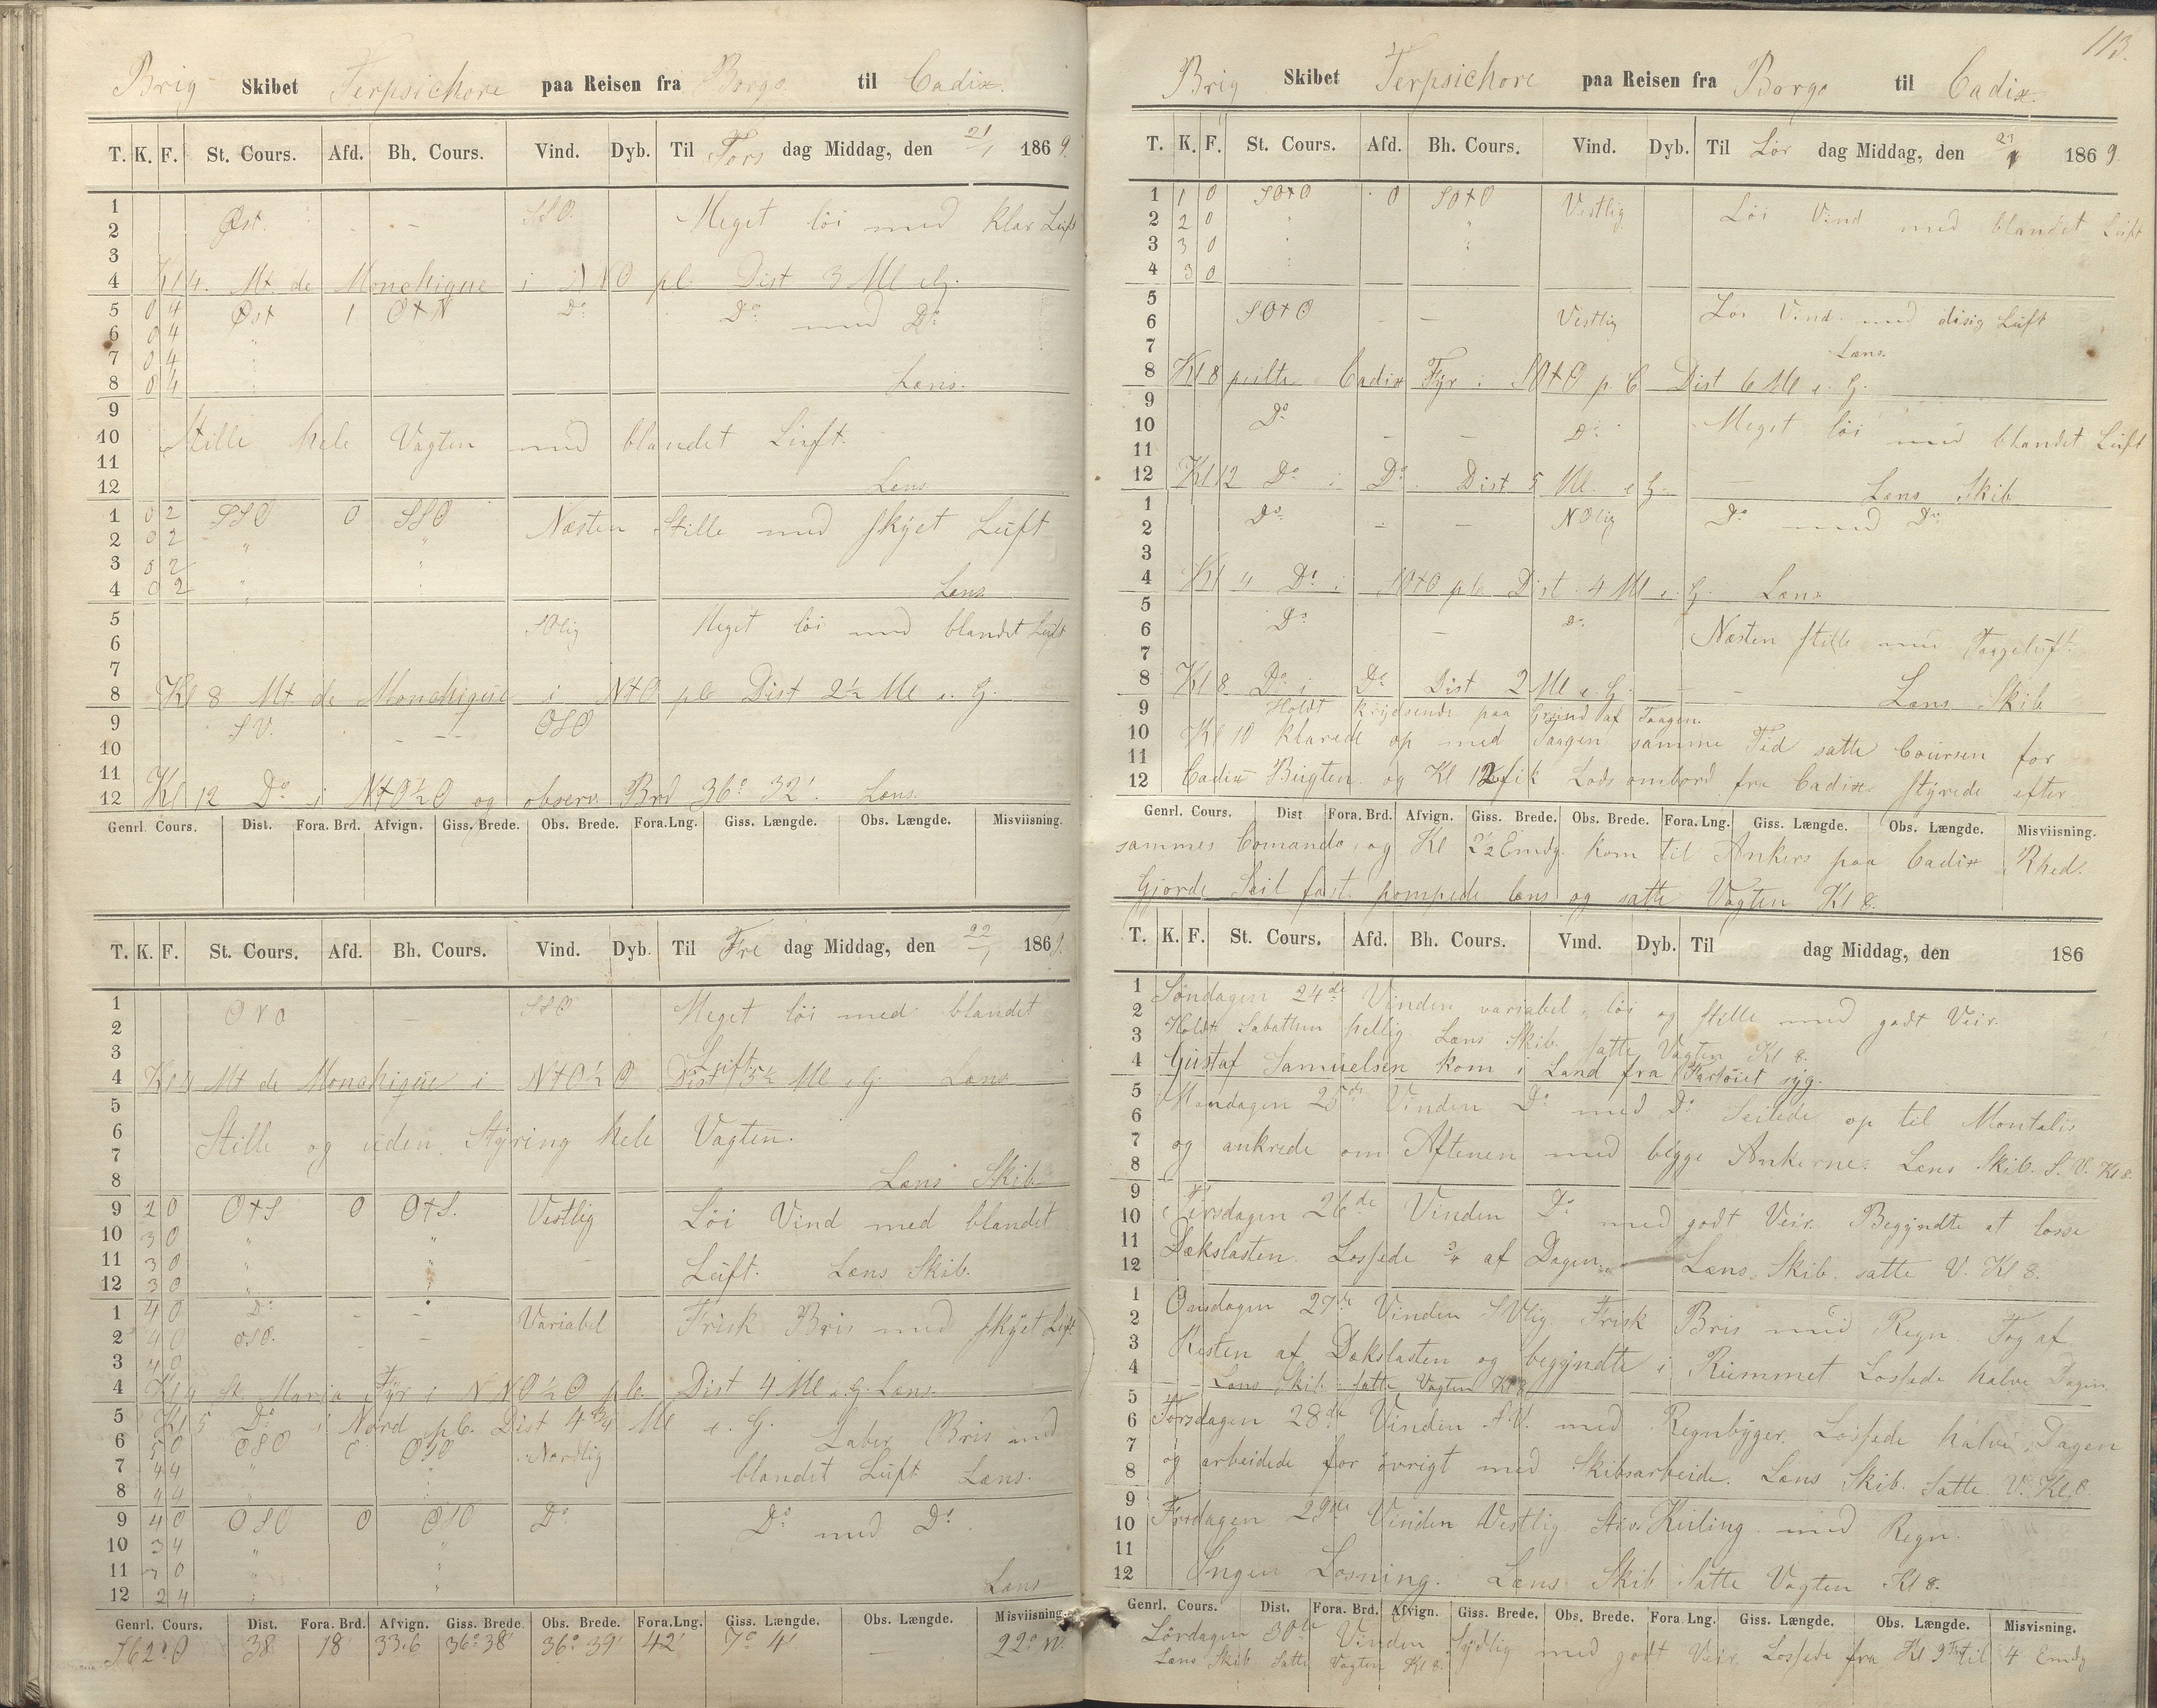 Brig Skibet Terpsichore paa Reisen fra Borgo til Cadix.
T. K. F. St. Cours. Afd. Bh. Cours. Vind. Dyb. Til Tors dag Middag, den 21/1 1869.
1 Øst. - - SSO. Meget löi med klar Luft
2
3
4 Kl 4. Mt. de Monchique i NNO pl. Dist 3 Ml e G.
5 0 4 Øst 1 O+N Do Do med Do
6 0 4 " "
7 0 4
8 0 4 Læns.
9
10 Stille hele Vagten med blandet Luft.
11
12 Læns
1 0 2 SSO 0 SSO Næsten Stille med skyet Luft
2 0 2 " "
3 0 2
4 0 2 " Læns
5 SOlig Meget löi med blandet Luft
6
7
8 Kl 8 Mt de Monchique i N+O plC Dist 2½ Ml e. G.
9 SV. - - OSO
10
11
12 Kl 12 Do i N+O½O og observ. Brd 36° 32'. Læns.
Genrl. Cours. Dist. Fora. Brd. Afvign. Giss. Brede. Obs. Brede. Fora.Lng. Giss. Længde. Obs. Længde. Misviisning.
T. K. F. St. Cours. Afd. Bh. Cours. Vind. Dyb. Til Fre dag Middag, den 22/1 1869.
1 - SSO Meget löi med blandet
2
3 Luft
4 Kl 4 Mt de Monchique i N+O½O Dist 5½ Ml e G. Læns
5
6 Stille og uden Styring hele Vagten.
7
8 Læns Skib
9 2 0 O+S 0 O+S. Vestlig Löi Vind med blandet
10 3 0 " "
11 3 0 " " Luft. Læns Skib.
12 3 0 "
1 4 0 Do - - Variabel Frisk Bris med skyet Luft
2 4 0 OSO. -
3 4 0
4 Kl 4 St. Maria Fyr i NNO½O plC. Dist 4 Ml e G. Læns.
5 Kl 5 Do i Nord plC. Dist 4 3/4 Ml e. G. Laber Bris med
6 5 0 OSO 0 OSO Nordlig
7 4 4 " blandet Luft Læns.
8 4 4
9 4 0 OSO 0 OSO Do Do med Do
10 3 4 " "
11 3 0 " "
12 2 4 Læns
Genrl. Cours. Dist. Fora. Brd. Afvign. Giss. Brede Obs. Brede. Fora.Lng. Giss. Længde. Obs. Længde. Misviisning.
S62°O 38 18 33.6 36° 38' 36° 39' 42' 7° 4' - 22° W.
113.
Brig Skibet Terpsichore paa Reisen fra Borgo til Cadix.
T. K. F. St. Cours. Afd. Bh. Cours. Vind. Dyb. Til Lör dag Middag, den 23/1 1869.
1 1 0 SO+O 0 SO+O Vestlig Löi Vind med blandet Luft
2 2 0 " "
3 3 0
4 3 0
5 SO+O - - Vestlig Löi Vind med disig Luft
6
7 Læns.
8 Kl 8 peilte Cadix Fyr i SO+O p. C Dist 6 Ml e. G.
9 Do - - Do Meget löi med blandet Luft
10
11
12 Kl 12 Do i Do. Dist 5 Ml e G. Læns Skib
1 Do - - NOlig Do med Do
2
3
4 Kl 4 Do i SO+O plC Dist 4 Ml e. G. Læns
5 Do - Do Næsten stille med Taageluft.
6
7
8 Kl 8 Do i Do Dist 2 Ml e. G. - - Læns Skib
9 Holdt krydsende paa Grund af Taagen.
10 Kl 10 klarede op med Taagen samme Tid satte Coursen for
11
12 Cadix Bugten. og Kl 12 fik Lods ombord fra Cadix styrede efter
Genrl. Cours. Dist Fora. Brd. Afvign. Giss. Brede. Obs. Brede. Fora.Lng. Giss. Længde. Obs. Længde. Misviisning.
sammes Comando, og Kl 2½ Emdg. kom til Ankers paa Cadix Rhed.
Gjorde Seil fast. pompede læns og satte Vagten Kl 8.
T. K. F. St. Cours. Afd. Bh. Cours. Vind. Dyb. Til dag Middag, den 186
1 Söndagen 24de Vinden variabel, löi og stille med godt Veir.
2
3 Holdt Sabatten hellig. Læns Skib. satte Vagten Kl 8.
4 Gustaf Samuelsen kom i Land fra Fartöiet syg.
5 Mandagen 25de Vinden Do med Do Seilede op til Montalis
6
7 og ankrede om Aftenen med begge Ankerne. Læns Skib. S. V. Kl 8.
8
9
10 Tirsdagen 26de Vinden Do med godt Veir. Begyndte at losse
11
12 Dækslasten. Lossede ¾ af Dagen. Læns Skib. satte V. Kl 8.
1 Onsdagen 27de Vinden SVlig Frisk Bris med Regn. Tog af
2
3 Resten af Dækslasten og begyndte i Rummet Lossede halve Dagen.
4 Læns Skib satte Vagten Kl 8
5
6 Torsdagen 28de Vinden SV. med Regnbyger. Lossede halve Dagen
7
8 og arbeidede for övrigt med Skibsarbeide. Læns Skib. Satte V. Kl 8.
9
10 Fredagen 29de Vinden Vestlig stiv Kuling med Regn.
11
12 Ingen Losning. Læns Skib Satte Vagten Kl 8.
Genrl. Cours. Dist. Fora. Brd. Afvign. Giss. Brede. Obs. Brede. Fora Lng. Giss. Længde. Obs. Længde. Misvisning.
Lördagen 30te Vinden Sydlig med godt Veir. Lossede fra Kl 9 Fm til 4 Emdg
Læns Skib Satte Vagten Kl 8.